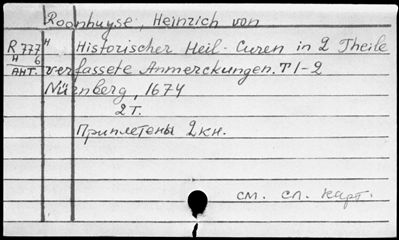 Roonhuyse, Heinrich von
R 777 H Historischer Heil-Curen in 2 Theile
H 6
АНТ. verfassete Anmerckungen. T 1-2
Nürnberg, 1674
2 т.
Приплетены 2 кн.
см. сл. карт.